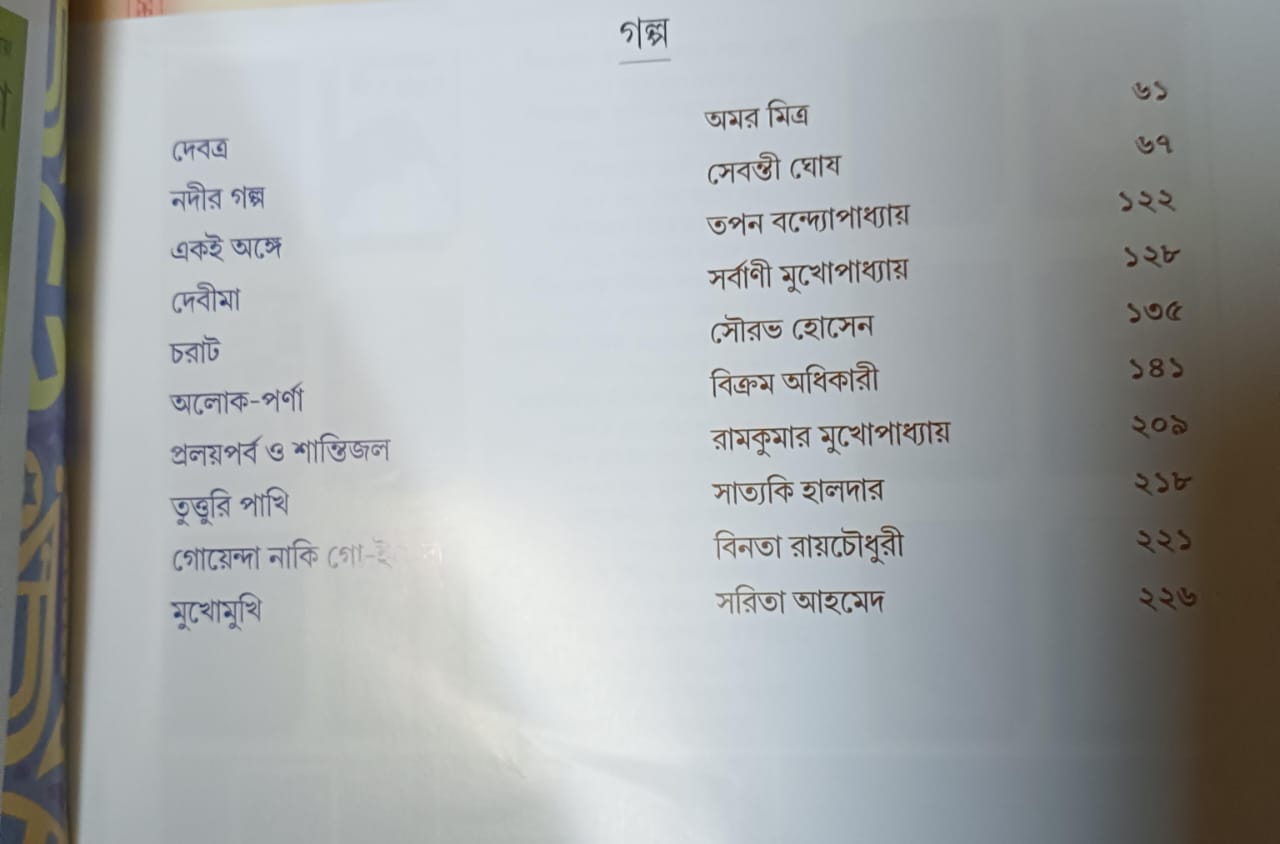 গল্প
দেবত্র অমর মিত্র ৬১
নদীর গল্প সেবন্তী ঘোষ ৬৭
একই অঙ্গে তপন বন্দ্যোপাধ্যায় ১২২
দেবীমা সর্বাণী মুখোপাধ্যায় ১২৮
চরাট সৌরভ হোসেন ১৩৫
অলোক-পর্ণা বিক্রম অধিকারী ১৪১
প্রলয়পর্ব ও শান্তিজল রামকুমার মুখোপাধ্যায় ২০৯
তুত্তুরি পাখি সাত্যকি হালদার ২১৮
গোয়েন্দা নাকি বিনতা রায়চৌধুরী ২২১
মুখোমুখি সরিতা আহমেদ ২২৬